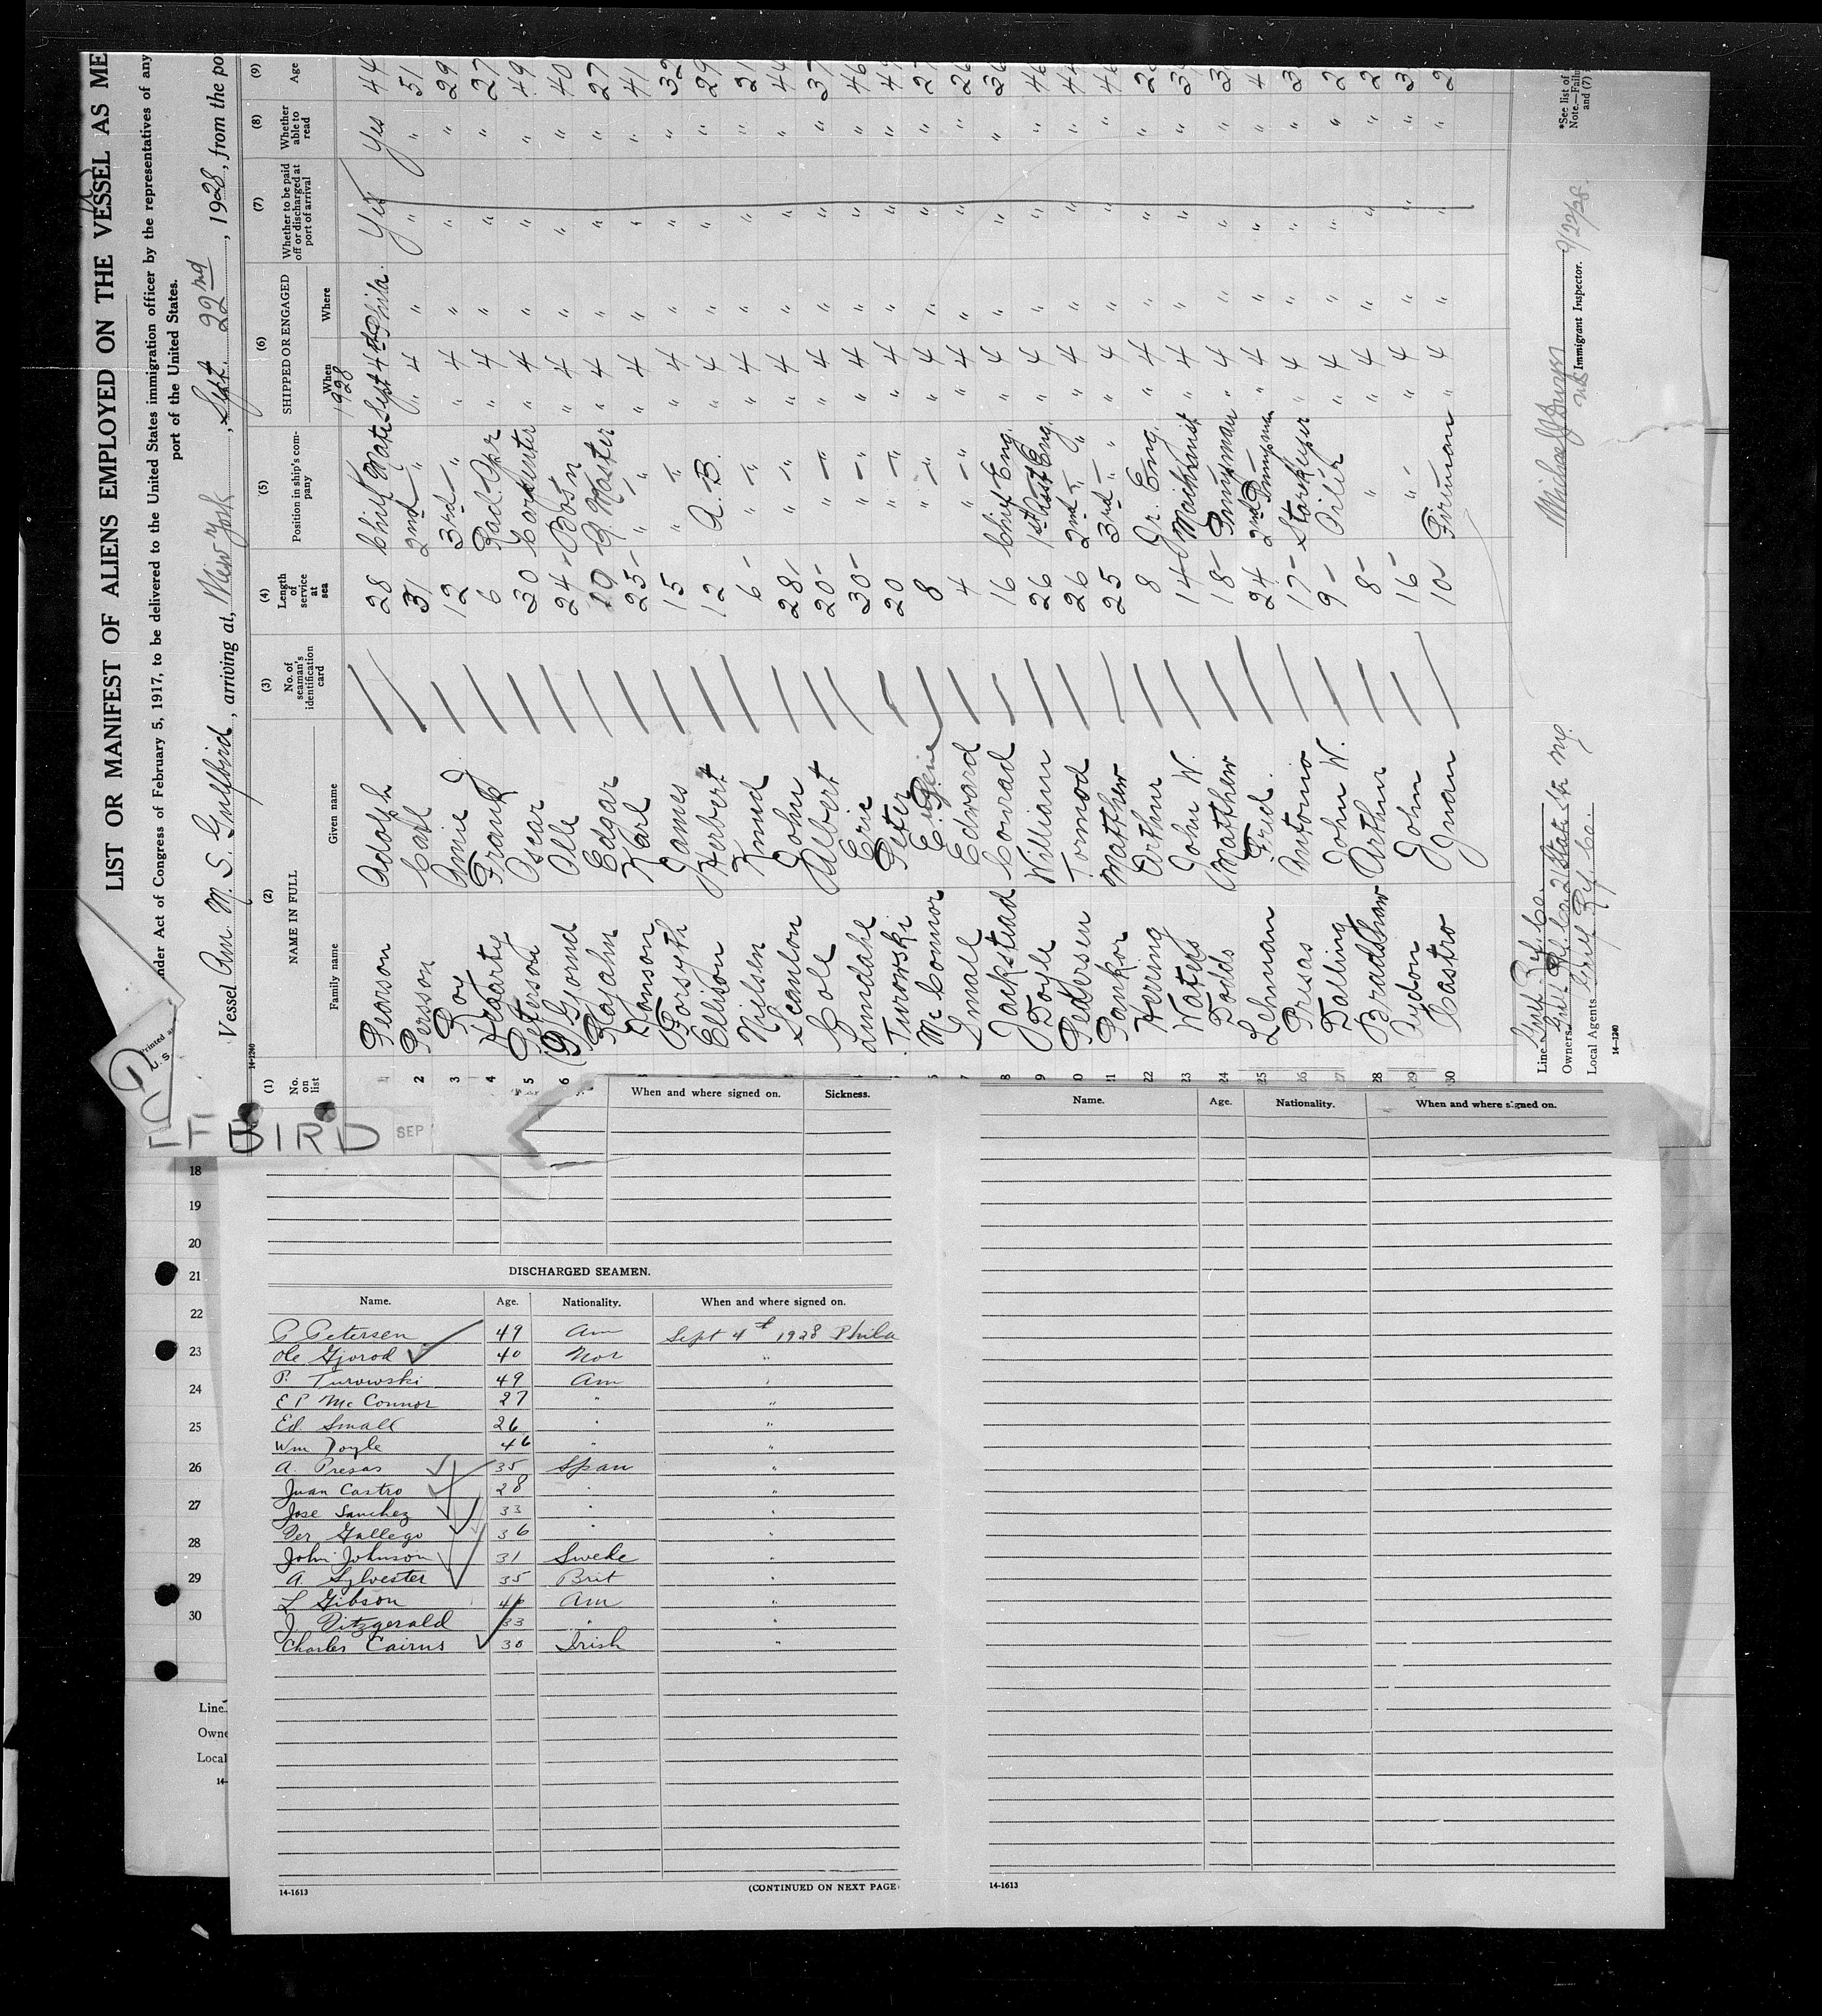 LIST OR MANIFEST OF ALIENS EMPLOYED ON THE VESSEL AS ME
nder Act of Congress of February 5, 1917, to be delivered to the United States immigration officer by the representatives of any
port of the United States.
Vessel Am. M. S. Gulfbird, arriving at, New York, Sept. 22nd, 1928, from the po
(1) (2) (3) (4) (5) (6) (7) (8) (9)
No. on list NAME IN FULL No. of seaman's identification card Length of service at sea Position in ship's company SHIPPED OR ENGAGED Whether to be paid off or discharged at port of arrival Whether able to read Age
Family name Given name When Where
1928
Pearson Adolph 28 Chief Mate Sept 4th Phila. Yes Yes 44
2 Persson Carl 31 2nd " " 4 " " " 51
3 Roy Amie J. 12 3rd " " 4 " " " 29
4 Hegarty Frank J 6 Rad. Opr " 4 " " " 27
5 Peterson Oscar 30 Carpenter " 4 " " " 49
6 Gjorud Olle 24 Bos'n " 4 " " " 40
Rajahn Edgar 19 Q. Master " 4 " " " 27
Hanson Karl 25 " " " 4 " " " 41
Forsyth James 15 " " " 4 " " " 32
Ellison Herbert 12 A. B. " 4 " " " 29
Nielsen Knud 6 " " " 4 " " " 21
Scanlon John 28 " " " 4 " " " 44
Cole Albert 20 " " " 4 " " " 37
Lundahl Eric 30 " " " 4 " " " 46
Turowski Peter 20 " " " 4 " " " 4
6 McConnor Eugene 8 " " " 4 " " " 2
7 Small Edward 4 " " " 4 " " " 26
8 Jackstead Conrad 16 Chief Eng. " 4 " " " 36
9 Doyle William 26 1st Asst Eng. " 4 " " " 46
0 Pedersen Tormod 26 2nd " " " 4 " " " 4
21 Pankor Matthew 25 3rd " " " 4 " " " 46
22 Herring Arthur 8 Jr. Eng. " 4 " " " 2
23 Waters John W. 14 Machinist " 4 " " " 3
24 Dodds Matthew 18 Pumpman " 4 " " " 3
25 Lehman Fred. 24 2nd Pumpman " 4 " " " 4
26 Presas Antonio 17 Storekeeper " 4 " " " 3
27 Dalling John W. 9 Oiler " 4 " " " 2
28 Braddshaw Arthur 8 " " 4 " " " 2
29 Aydon John 16 " " 4 " " " 3
30 Castro Juan 10 Fireman " 4 " " " 2
Line Gulf Rf. Co.
Owners Gulf Rf. Co. 21 State Str. Ny.
Local Agents Gulf Rf. Co.
14-1240
Immigrant Inspector. 9/22/28.
*See list of
Note.—Failu
and (7)
14-1240
Printed
U. S.
LFBIRD SEP
When and where signed on. Sickness.
Name. Age. Nationality. When and where signed on.
18
19
20
21
22
23
24
25
26
27
28
29
30
Line
Owne
Local
14-
DISCHARGED SEAMEN.
Name. Age. Nationality. When and where signed on.
P Petersen 49 Am Sept 4th 1928 Phila
Ole Gjorod 40 Nor "
P. Turowski 49 Am "
E P McConnor 27 " "
Ed. Small 26 " "
Wm Doyle 46 " "
A. Presas 35 Span "
Juan Castro 28 " "
Jose Sanchez 33 " "
Per Gallego 36 " "
John Johnson 31 Swede "
A. Sylvester 35 Brit "
L Gibson 4 Am "
J. Fitzgerald 33 " "
Charles Cairns 30 Irish "
14-1613
(CONTINUED ON NEXT PAGE
14-1613